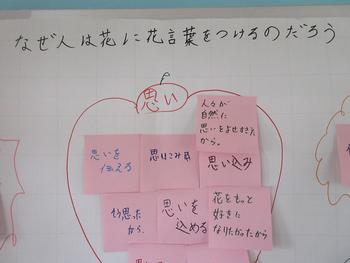 なぜ人は花に花言葉をつけるのだろう
思い
人々が
自然に
思いをよせてきた
から。
思いを
伝える
思いこみ
思い込み
思ったから。
思いを
込める
花をもっと
好きに
なりたかったから